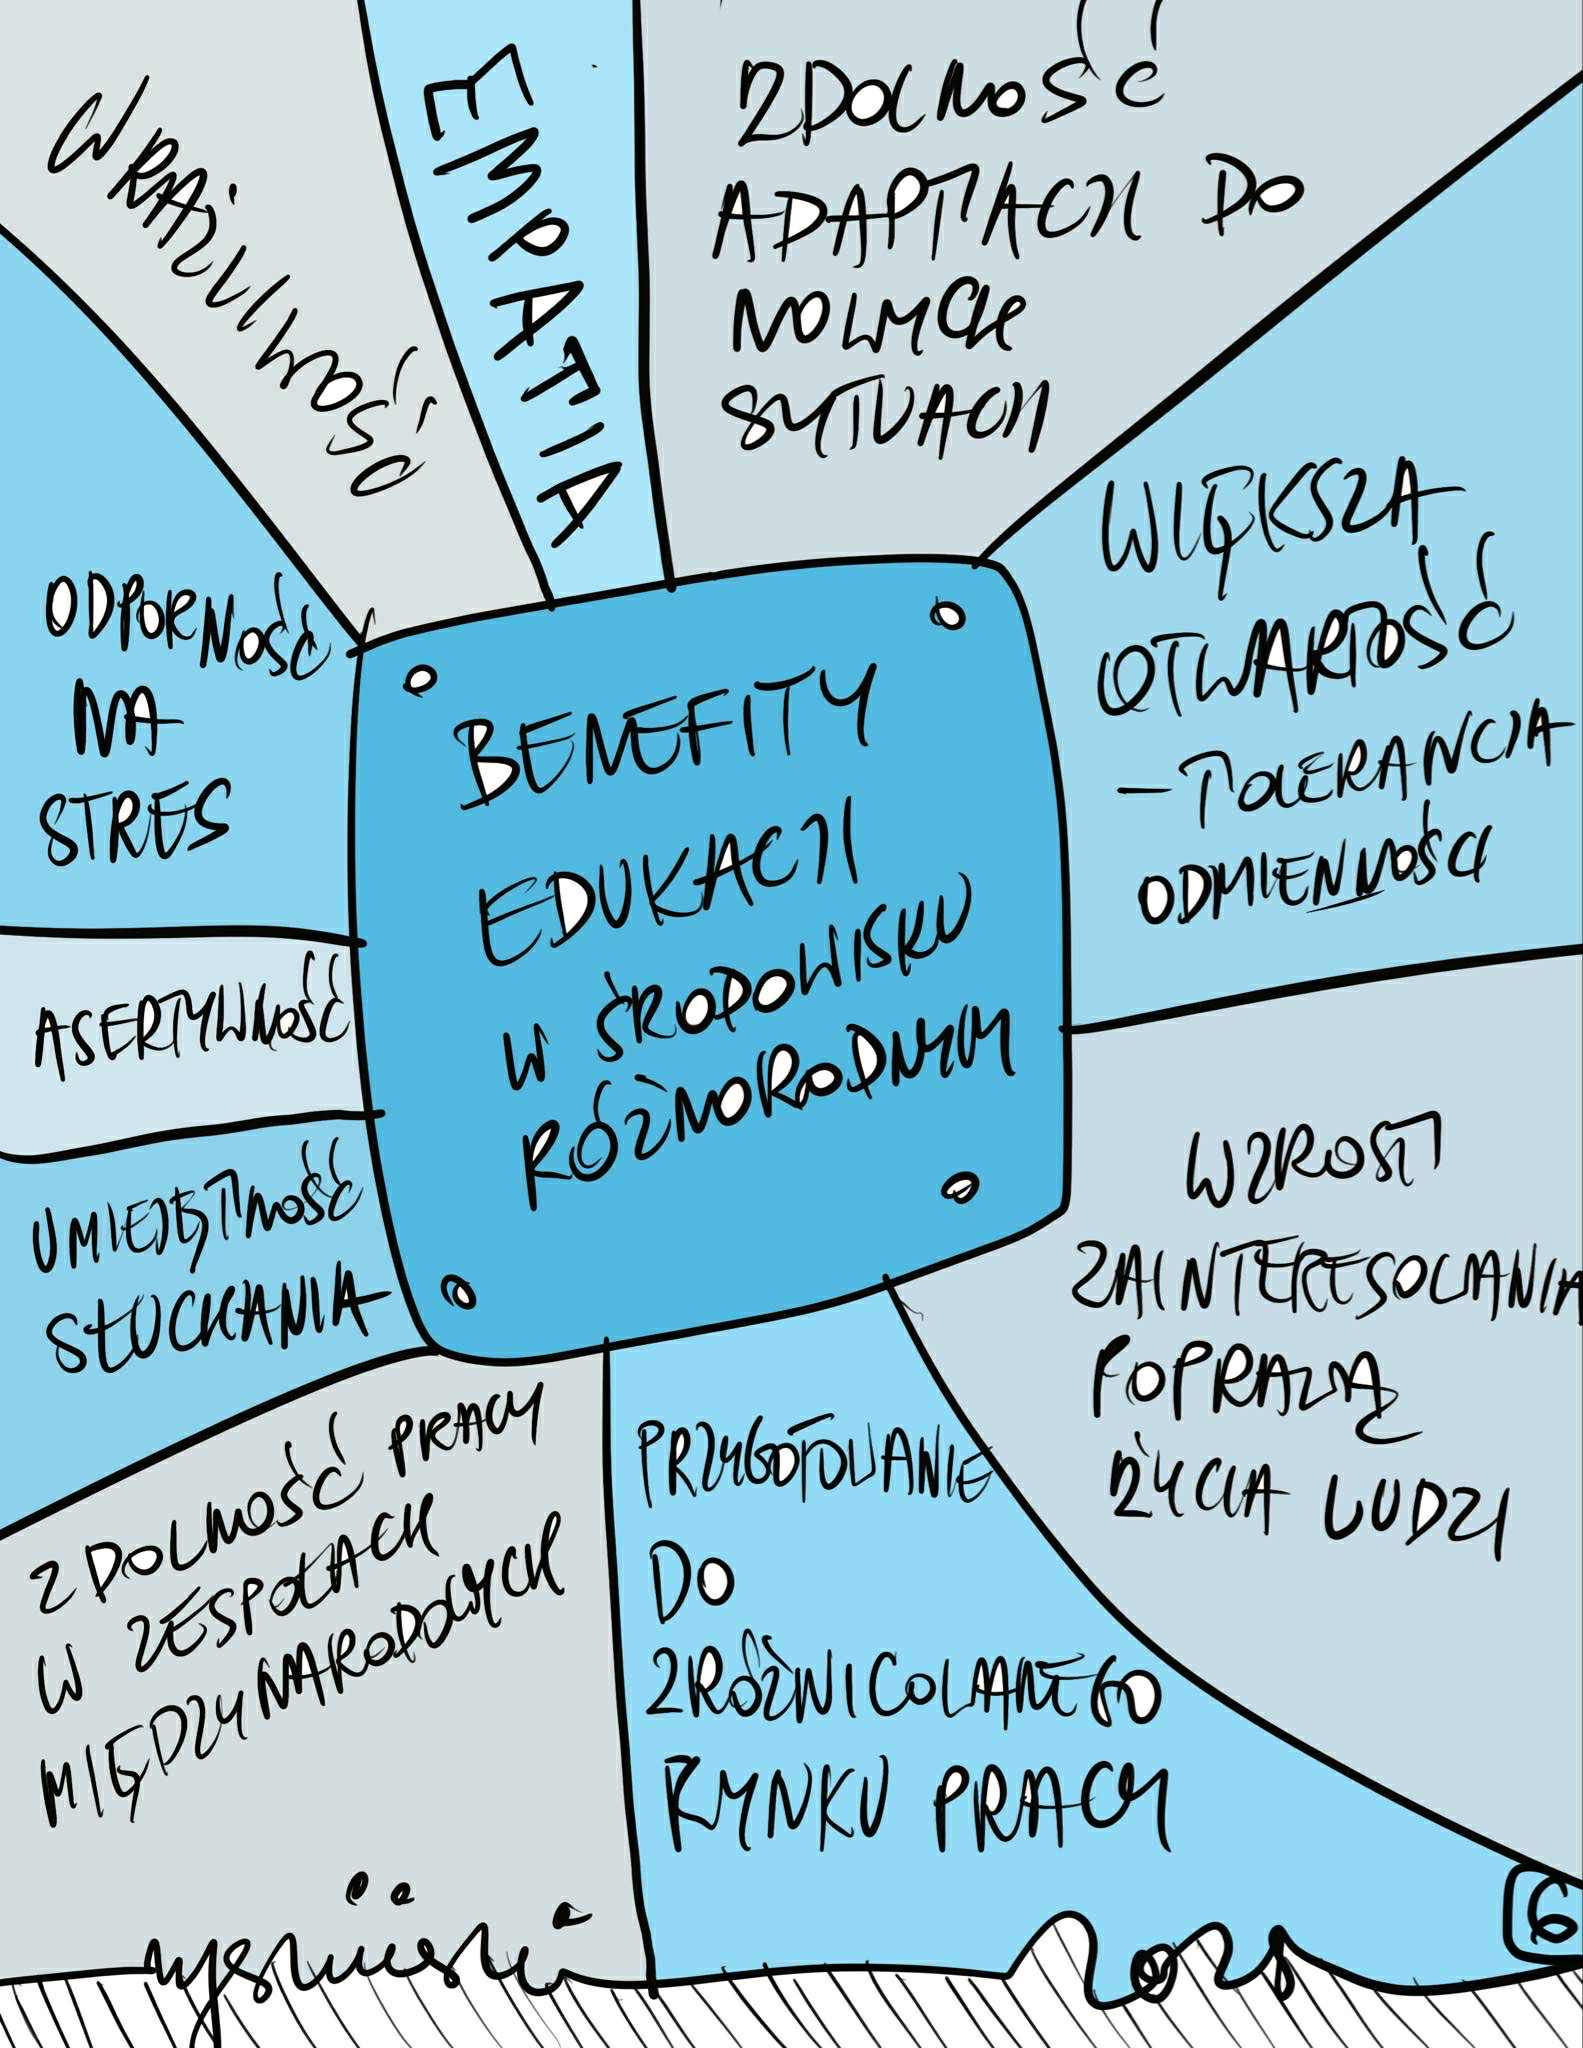 BENEFITY
EDUKACJI
W ŚRODOWISKU
RÓŻNORODNYM
WRAŻLIWOŚĆ
EMPATIA
ZDOLNOŚĆ
ADAPTACJI DO
NOWYCH
SYTUACJI
WIĘKSZA
OTWARTOŚĆ
- TOLERANCJA
ODMIENNOŚCI
WZROST
ZAINTERESOWANIA
POPRAWĄ
ŻYCIA LUDZI
PRZYGOTOWANIE
DO
ZRÓŻNICOWANEGO
RYNKU PRACY
ZDOLNOŚĆ PRACY
W ZESPOŁACH
MIĘDZYNARODOWYCH
UMIEJĘTNOŚĆ
SŁUCHANIA
ASERTYWNOŚĆ
ODPORNOŚĆ
NA
STRES
6